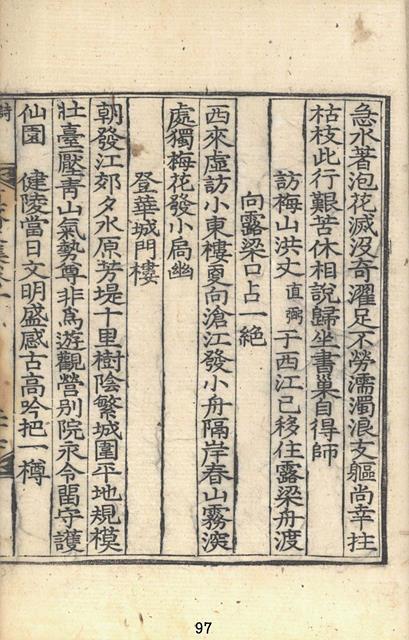 急水著泡花滅沒奇濯足不勞濡濁浪支軀尚幸拄
枯枝此行艱苦休相說歸坐書巢自得師
訪梅山洪丈直弼于西江已移住露梁舟渡
向露梁口占一絶
西來虛訪小東樓夏向滄江發小舟隔岸春山霧深
處獨梅花發小局幽
登華城門樓
朝發江郊夕水原芳堤十里樹陰繁城圍平地規模
壯臺壓靑山氣勢尊非爲遊觀營別院永令留守護
仙園 健陵當日文明盛感古高吟把一樽
97